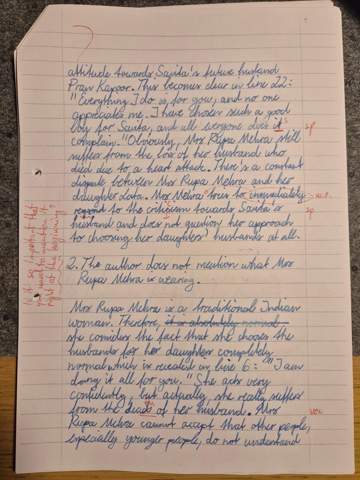 attitude towards Savita's future husband
Pran Kapoor. This becomes clear in line 22:
"Everything I do is for you, and no one
appreciates me. I have chosen such a good
boy for Savita, and all everyone does is
complain." Obviously, Mrs Rupa Mehra still
suffer from the loss of her husband who
died due to a heart attack. There's a constant
dispute between Mrs Rupa Mehra and her
daughter Lata. Mrs Mehra tries to immediately
respond to the criticism towards Savita's
husband and does not question her approach
to choosing her daughters' husbands at all.
2. The author does not mention what Mrs
Rupa Mehra is wearing.
Mrs Rupa Mehra is a traditional Indian
woman. Therefore, it is absolutely normal
she considers the fact that she chooses the
husbands for her daughters completely
normal which is revealed in line 6: "I am
doing it all for you." She acts very
confidently, but actually, she really suffers
from the death of her husband. Mrs
Rupa Mehra cannot accept that other people,
especially younger people, do not understand
sp
sp